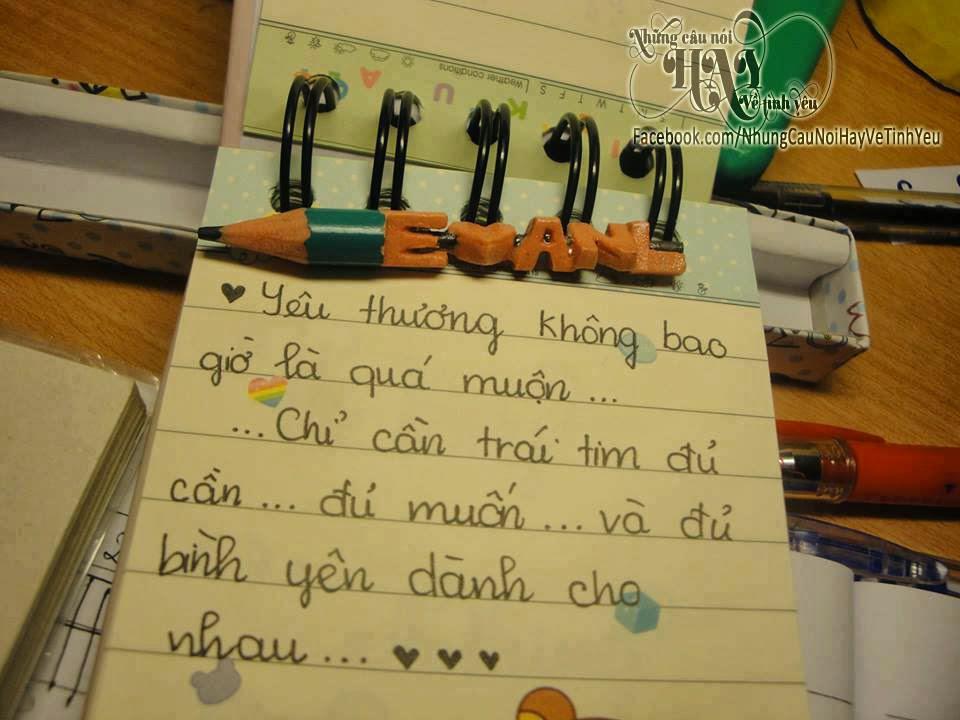 Những câu nói
HAY
Về tình yêu
Facebook.com/NhungCauNoiHayVeTinhYeu
Weather conditions
T W T F S
♥ Yêu thương không bao
giờ là quá muộn...
...Chỉ cần trái tim đủ
cần... đủ muốn... và đủ
bình yên dành cho
nhau... ♥ ♥ ♥